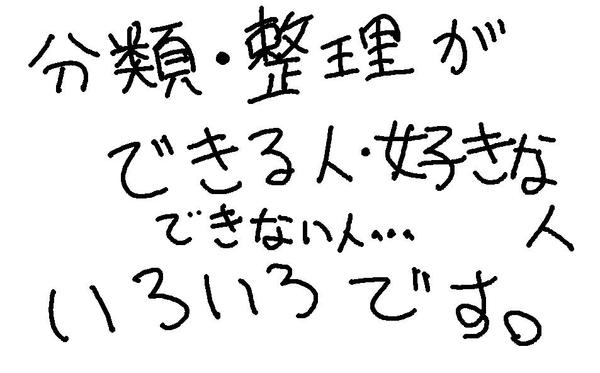 分類・整理が
できる人・好きな人
できない人...
いろいろです。